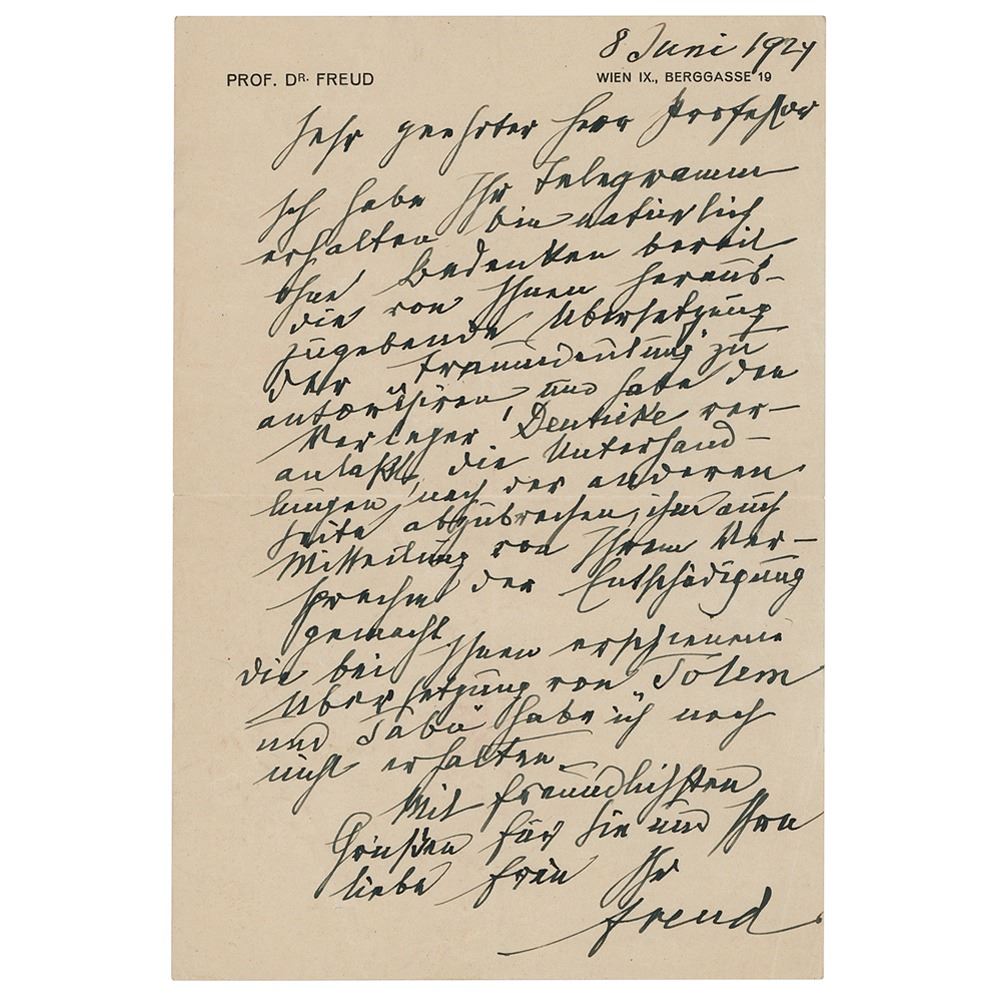 8 Juni 1924
PROF. DR. FREUD
WIEN IX., BERGGASSE 19
Sehr geehrter Herr Professor
Ich habe Ihr Telegramm
erhalten bin natürlich
ohne Bedenken bereit
die von Ihnen heraus-
zugebende Übersetzung
der Traumdeutung zu
autorisiren und habe den
Verleger Deuticke ver-
anlaßt, die Unterhand-
lungen nach der anderen
Seite abzubrechen, ihm auch
Mitteilung von Ihrem Ver-
sprechen der Entschädigung
gemacht
Die bei Ihnen erschienene
Übersetzung von "Totem
und Tabu" habe ich noch
nicht erhalten.
Mit freundlichsten
Grüßen für Sie und Ihre
liebe Frau Ihr
Freud